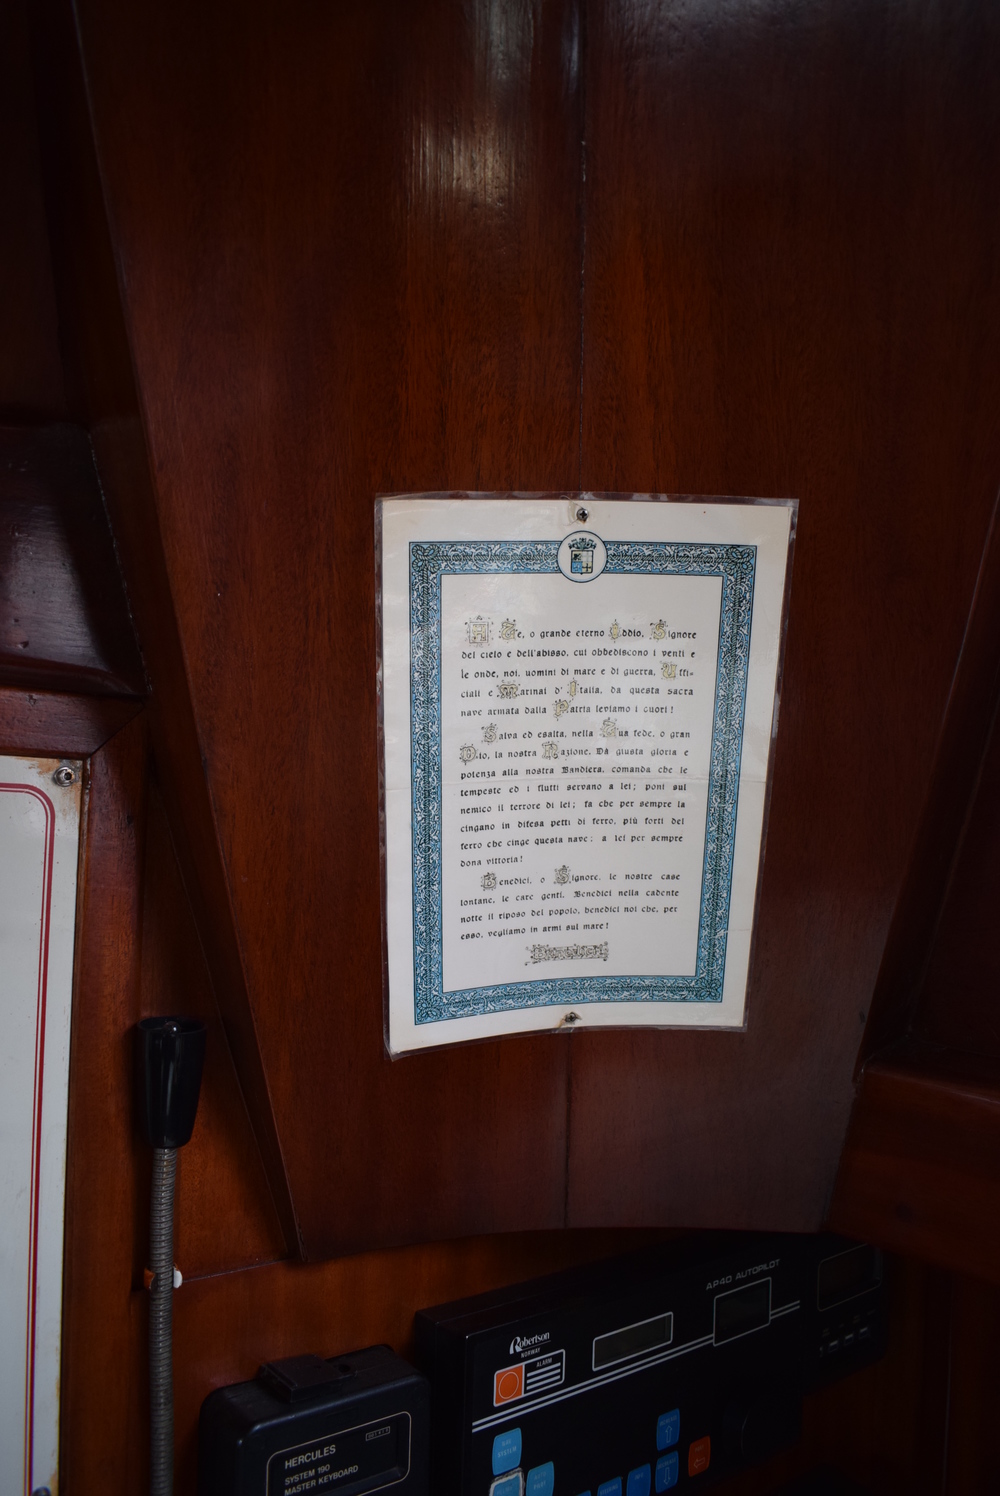 A Te, o grande eterno Iddio, Signore
del cielo e dell'abisso, cui obbediscono i venti e
le onde, noi, uomini di mare e di guerra, Uffi-
ciali e Marinai d'Italia, da questa sacra
nave armata dalla Patria leviamo i cuori!
Salva ed esalta, nella Tua fede, o gran
Dio, la nostra Nazione. Dà giusta gloria e
potenza alla nostra Bandiera, comanda che le
tempeste ed i flutti servano a lei; poni sul
nemico il terrore di lei; fa che per sempre la
cingano in difesa petti di ferro, più forti del
ferro che cinge questa nave; a lei per sempre
dona vittoria!
Benedici, o Signore, le nostre case
lontane, le care genti. Benedici nella cadente
notte il riposo del popolo, benedici noi che, per
esso, vegliamo in armi sul mare!
Benedici!
AP40 AUTOPILOT
Robertson
NORWAY
ALARM
HERCULES
SYSTEM 190
MASTER KEYBOARD